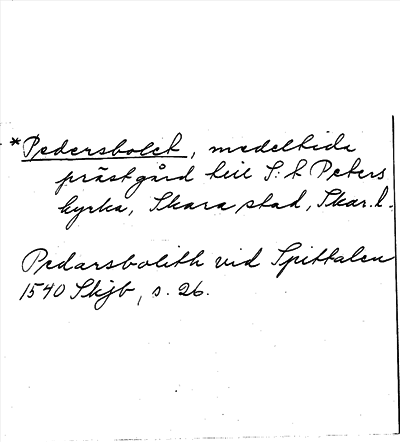 *Pedersbolet, medeltida
prästgård till S:t Peters
kyrka, Skara stad, Skar. l.
Pedarsbolith vid Spittalen
1540 Skjb, s. 26.